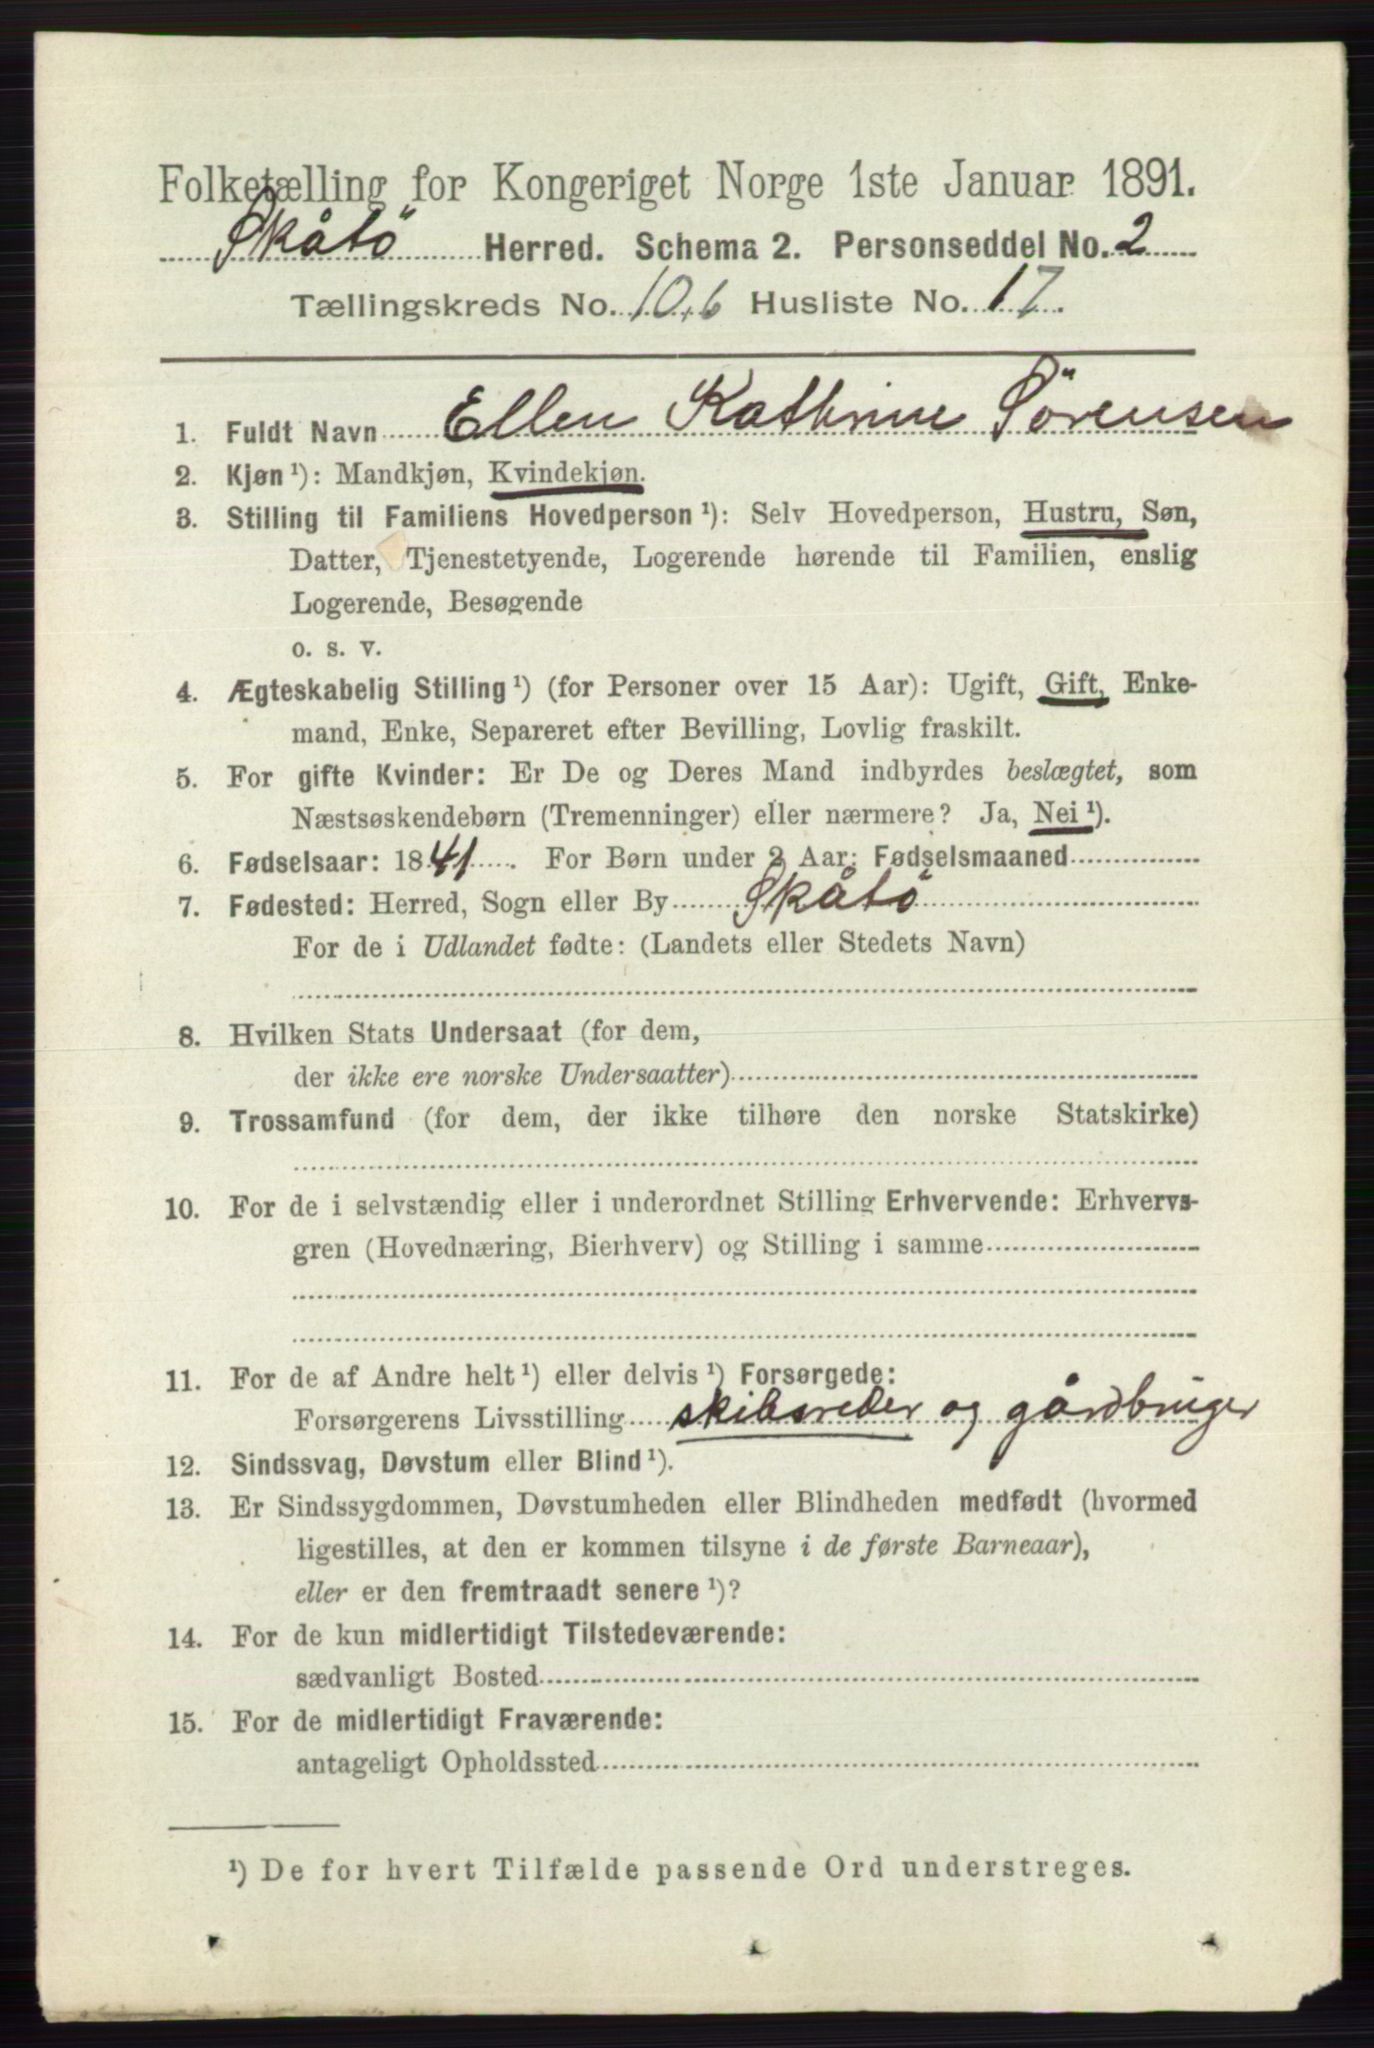 Folketælling for Kongeriget Norge 1ste Januar 1891.
Skåtö Herred. Schema 2. Personseddel No. 2
Tællingskreds No. 10,6 Husliste No. 17.
1. Fuldt Navn Ellen Kathrine Sörensen
2. Kjøn ¹): Mandkjøn, Kvindekjøn.
3. Stilling til Familiens Hovedperson ¹): Selv Hovedperson, Hustru, Søn,
Datter, Tjenestetyende, Logerende hørende til Familien, enslig
Logerende, Besøgende
o. s. v.
4. Ægteskabelig Stilling ¹) (for Personer over 15 Aar): Ugift, Gift, Enke-
mand, Enke, Separeret efter Bevilling, Lovlig fraskilt.
5. For gifte Kvinder: Er De og Deres Mand indbyrdes beslægtet, som
Næstsøskendebørn (Tremenninger) eller nærmere? Ja, Nei ¹).
6. Fødselsaar: 1841. For Børn under 2 Aar: Fødselsmaaned
7. Fødested: Herred, Sogn eller By Skåtö
For de i Udlandet fødte: (Landets eller Stedets Navn)
8. Hvilken Stats Undersaat (for dem,
der ikke ere norske Undersaatter)
9. Trossamfund (for dem, der ikke tilhøre den norske Statskirke)
10. For de i selvstændig eller i underordnet Stilling Erhvervende: Erhvervs-
gren (Hovednæring, Bierhverv) og Stilling i samme
11. For de af Andre helt ¹) eller delvis ¹) Forsørgede:
Forsørgerens Livsstilling skibsreder og gårdbruger
12. Sindssvag, Døvstum eller Blind ¹).
13. Er Sindssygdommen, Døvstumheden eller Blindheden medfødt (hvormed
ligestilles, at den er kommen tilsyne i de første Barneaar),
eller er den fremtraadt senere ¹)?
14. For de kun midlertidigt Tilstedeværende:
sædvanligt Bosted
15. For de midlertidigt Fraværende:
antageligt Opholdssted
¹) De for hvert Tilfælde passende Ord understreges.